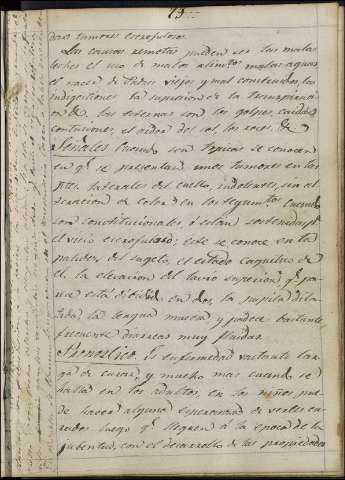 13
daros tumores escrofulosos.
Las causas remotas pueden ser las malas
leches el uso de malos alimtos malas aguas
el nacer de Padres viejos y mal constituidos, las
indigestiones la supresion de la transpiracion
&. las externas son los golpes, caidas
contuciones, el ardor del sol, los roces, &
Señales Cuando son topicas se conocen
en qe se presentan unos tumores en las
ptes. laterales del cuello, indolentes, sin al
teracion de color en los tegumtos Cuando
son constitucionales, ó estan sostenidas pr
el vicio escrofuloso; este se conoce en la
palidez del sugeto, el estado caquetico de
el, la elevacion del lavio superior qe pa
rece está dibidido en dos, la pupila dila
tada, la lengua mucosa y padece bastante
frecuente diarreas muy fluidas.
Pronostico. es enfermedad bastante lar
ga de curar, y mucho mas cuando se
halla en los adultos, en los niños pue
de haver alguna esperanza de verles cu
rados luego qe lleguen á la epoca de la
jubentud, con el desarrollo de las propiedades